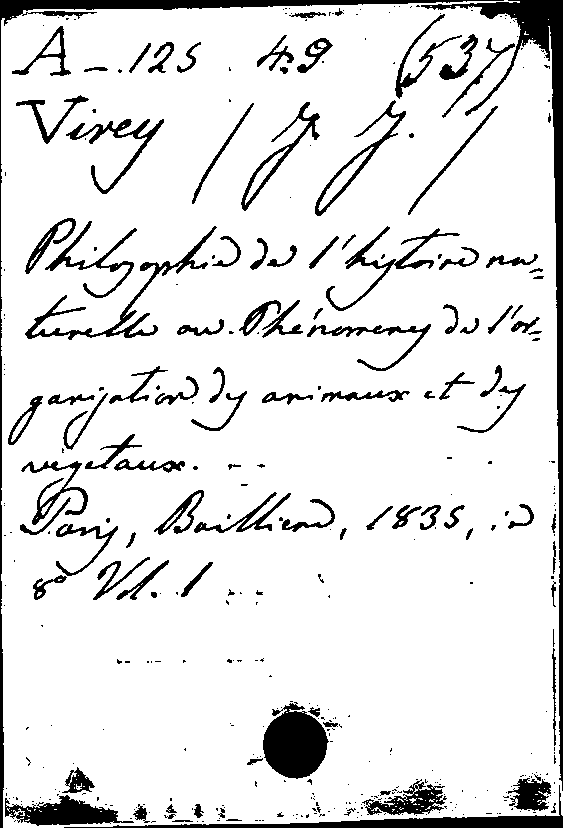 A - 125 49 (537)
Virey / J. J. /
Philosophie de l'histoire na=
turelle ou Phénomenes de l'or=
ganisation des animaux et des
vegetaux.
Paris, Bailliere, 1835, in
8° Vol. 1